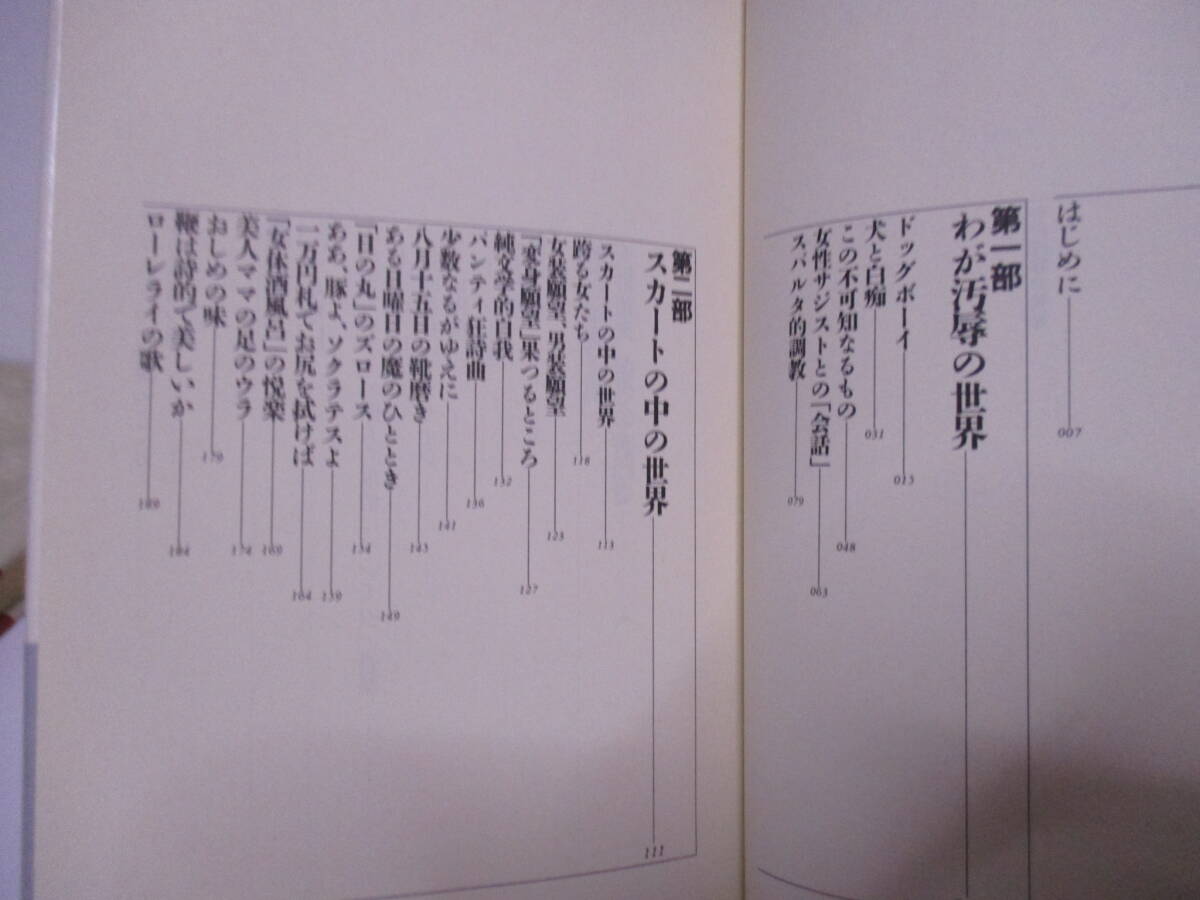 はじめに 007
第一部
わが汚辱の世界
ドッグボーイ 013
犬と白痴 031
この不可知なるもの 048
女性サジストとの「会話」 063
スパルタ的調教 079
第二部
スカートの中の世界 111
スカートの中の世界 113
跨る女たち 118
女装願望、男装願望 123
「変身願望」果つるところ 127
純文学的自我 132
パンティ狂詩曲 136
少数なるがゆえに 141
八月十五日の靴磨き 145
ある日曜日の魔のひととき 149
「日の丸」のズロース 154
ああ、豚よ、ソクラテスよ 159
一万円札でお尻を拭けば 164
「女体酒風呂」の悦楽 169
美人ママの足のウラ 174
おしめの味 179
鞭は詩的で美しいか 184
ローレライの歌